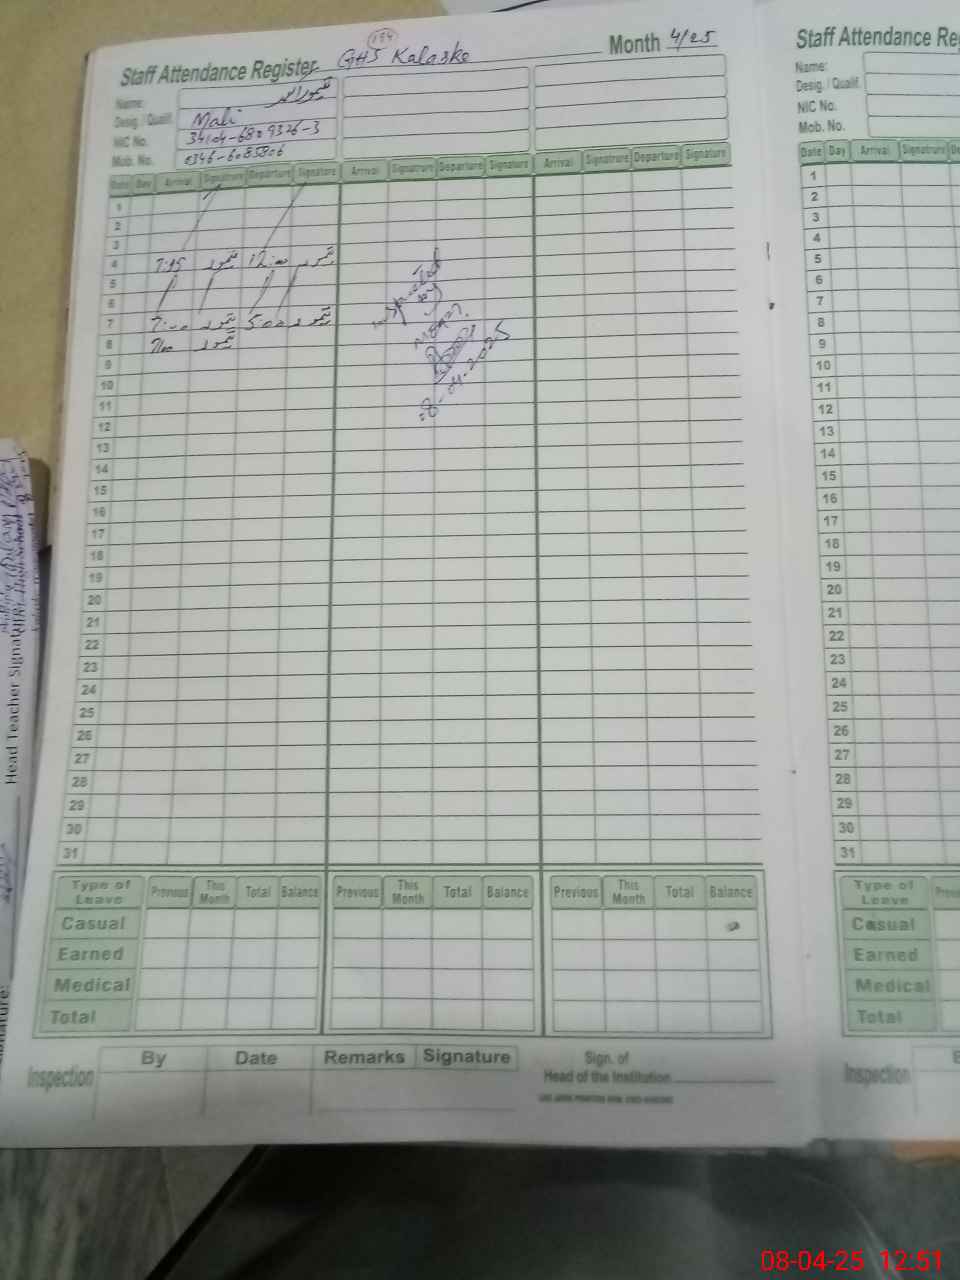 194
Staff Attendance Register GHS Kalaske Month 4/25
Name: تیمور احمد
Desig. / Qualif. Mali
NIC No. 34104-6809326-3
Mob. No. 0346-6085806
Date Day Arrival Signatrure Departure Signature Arrival Signatrure Departure Signature Arrival Signatrure Departure Signature
1
2
3
4 7:45 تیمور 12:00 تیمور
5
6
7 7:00 تیمور 5:00 تیمور
8 7:00 تیمور
9
10
11
12
13
14
15
16
17
18
19
20
21
22
23
24
25
26
27
28
29
30
31
by
08-04-2025
Type of Leave Previous This Month Total Balance Previous This Month Total Balance Previous This Month Total Balance
Casual
Earned
Medical
Total
Inspection By Date Remarks Signature
Sign. of
Head of the Institution
Staff Attendance Re
Name:
Desig. / Qualif.
NIC No.
Mob. No.
Date Day Arrival Signatrure
1
2
3
4
5
6
7
8
9
10
11
12
13
14
15
16
17
18
19
20
21
22
23
24
25
26
27
28
29
30
31
Type of Leave
Casual
Earned
Medical
Total
Inspection
Head Teacher Signature
08-04-25 12:51